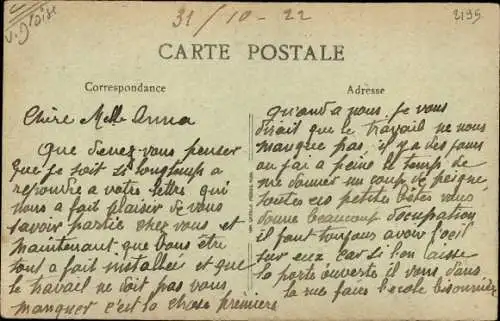 31/10-22
2195
V. d'oise
CARTE POSTALE
Correspondance
Adresse
Chère Melle Anna
Que devez-vous penser
que je soit si longtemps a
repondre a votre lettre qui
nous a fait plaisir de vous
savoir partie chez vous et
maintenant que vous être
tout a fait installée et que
le travail ne doit pas vous
manquer c'est la chose première
quand a nous je vous
dirait que le travail ne nous
manque pas, il y a des jours
ou j'ai a peine le temps de
me donner un coup de peigne,
toutes ces petites bêtes vous
donne beaucoup d'occupation
il faut toujours avoir l'oeil
sur eux car si l'on laisse
la porte ouverte il vous dans
la rue faire l'école bisounière